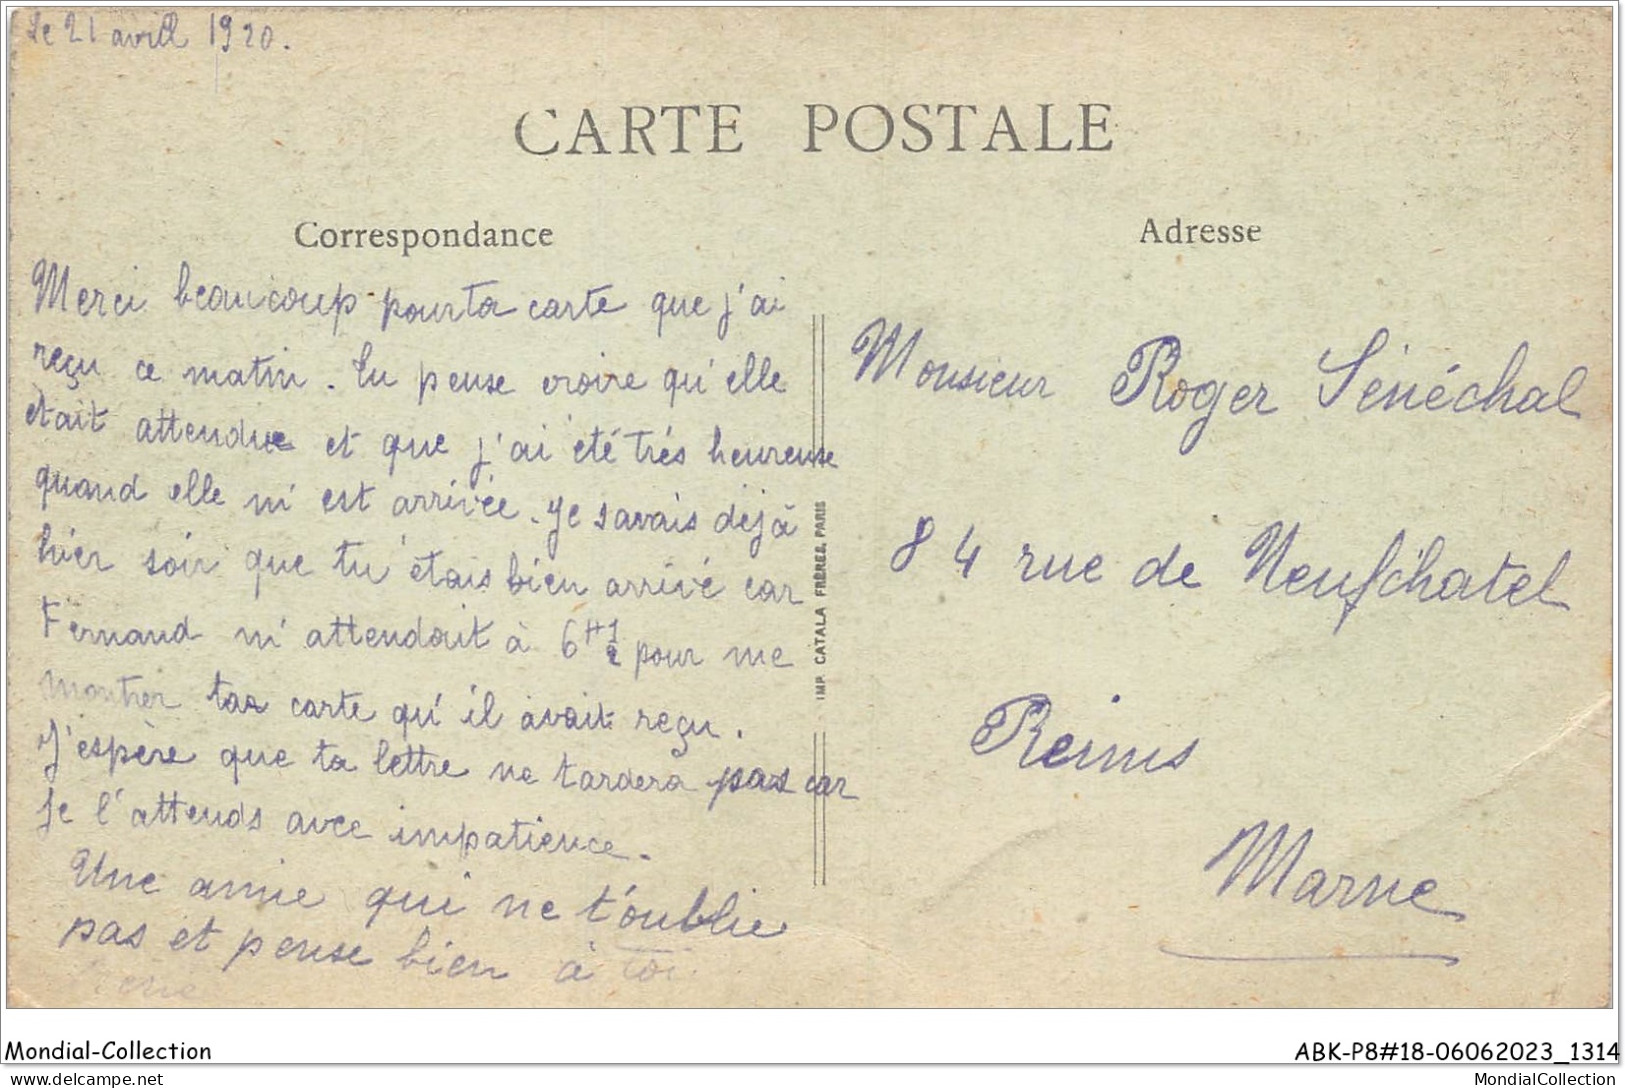 Le 21 avril 1920.
CARTE POSTALE
Correspondance
Merci beaucoup pour ta carte que j'ai
reçu ce matin. Tu pense croire qu'elle
était attendue et que j'ai été très heureuse
quand elle m'est arrivée. Je savais déjà
hier soir que tu étais bien arrivé car
Fernand m'attendait à 6H 1/2 pour me
montrer tas carte qu'il avait reçu.
J'espère que ta lettre ne tardera pas car
Je l'attends avec impatience.
Une amie qui ne t'oublie
pas et pense bien à toi
IMP. CATALA FRÈRES, PARIS
Adresse
Monsieur Roger Sénéchal
84 rue de Neufchatel
Reims
Marne
Mondial-Collection
ABK-P8#18-06062023_1314
delcampe.net
MondialCollection